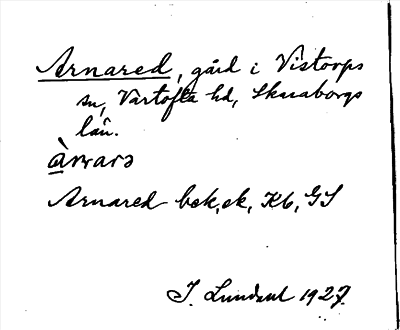 Arnared, gård i Vistorps
sn, Vartofta hd, Skaraborgs
län.
Arnared bek, ek, Kb, GS
J. 1927.